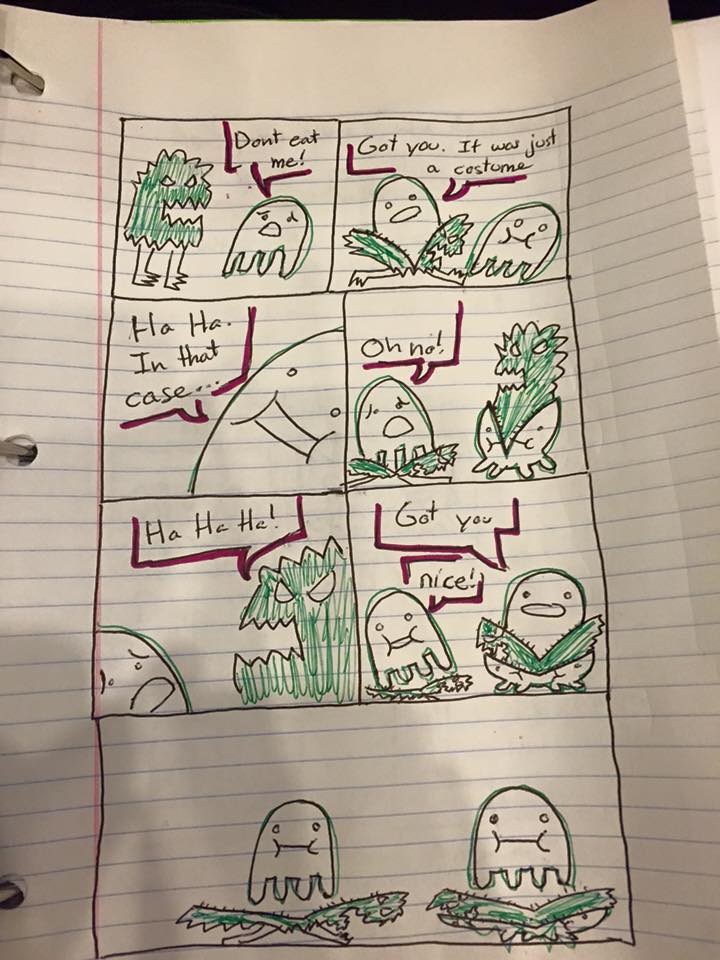 Dont eat
me!
Got you. It was just
a costume
Ha Ha.
In that
case...
Oh no!
Ha Ha Ha!
Got you
nice!